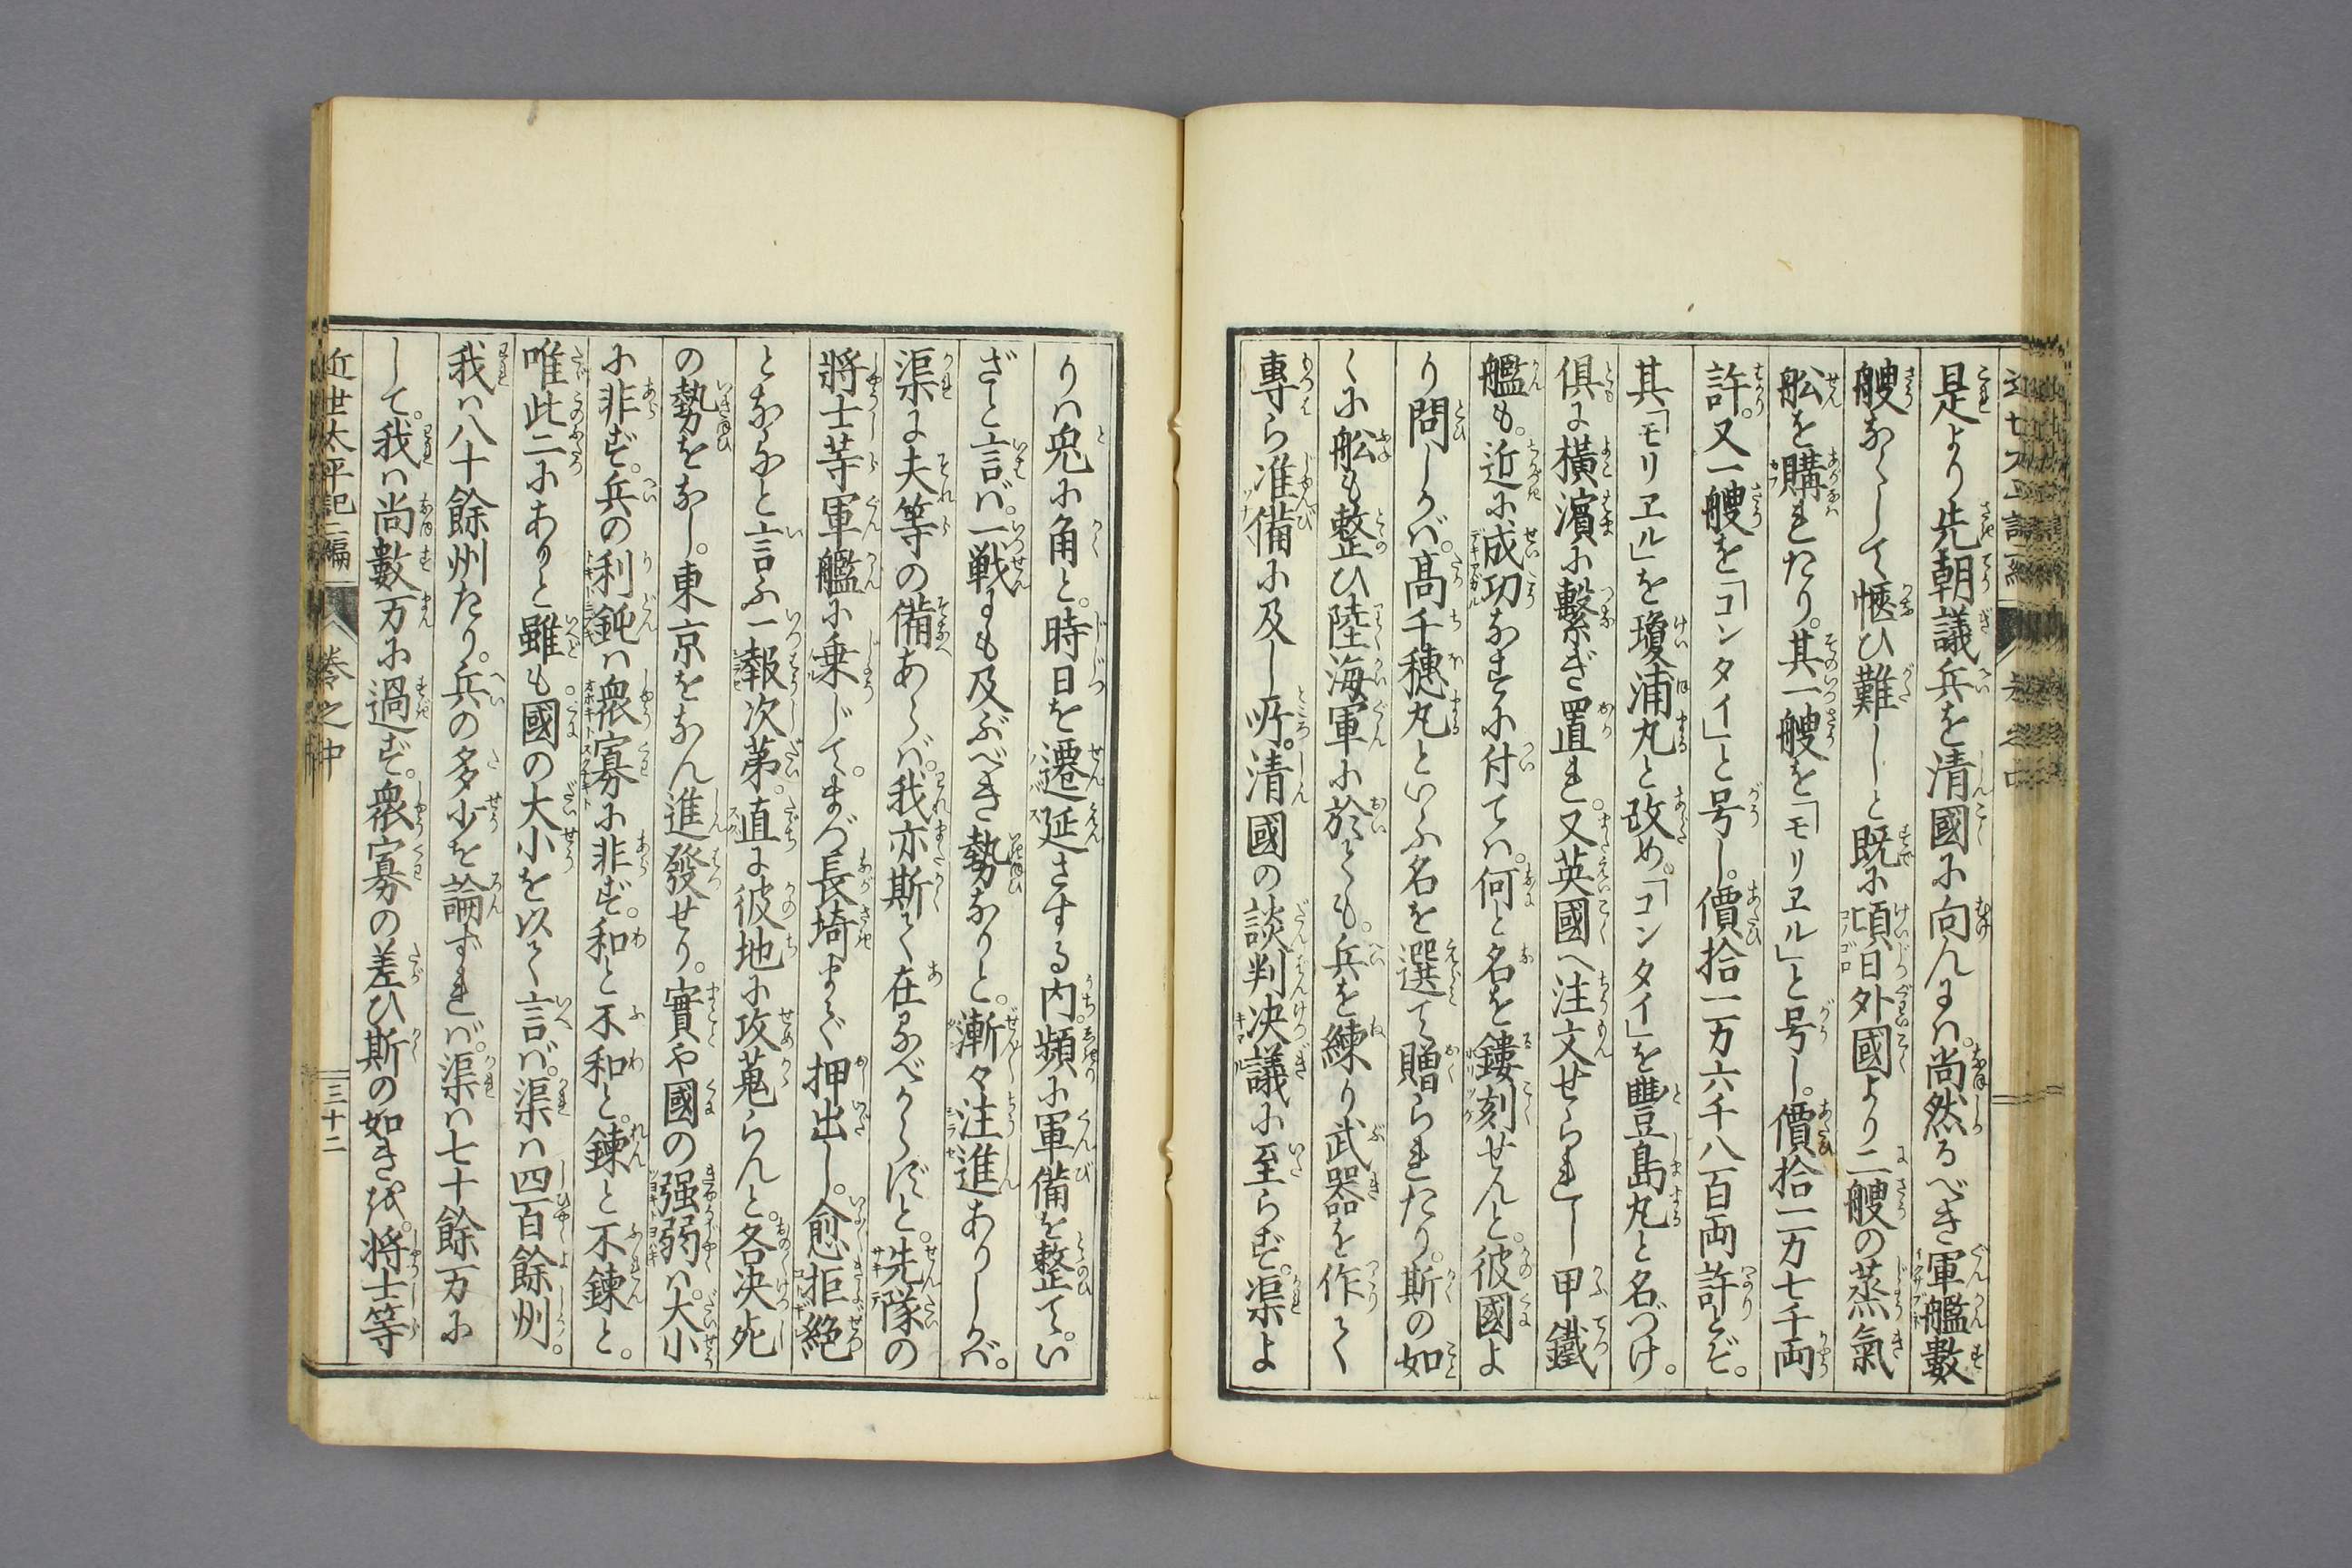 是より先朝議兵を清國に向んには。尚然るべき軍艦數
艘なくして愜ひ難しと既に頃日外國より二艘の蒸氣
舩を購れたり。其一艘を「モリヱル」と号し。價拾一万七千両
許。又一艘を「コンタイ」と号し。價拾一万六千八百両許とぞ。
其「モリヱル」を瓊浦丸と改め。「コンタイ」を豐島丸と名づけ。
俱に橫濵に繋ぎ置れ。又英國へ注文せられし甲鐵
艦も。近に成功なすに付ては。何と名を鏤刻せんと。彼國よ
り問しかば。髙千穗丸といふ名を選て贈られたり。斯の如
くに舩も整ひ陸海軍に於ても。兵を練り武器を作りて
專ら准備に及し所。清國の談判决議に至らず。渠よ
りは兎に角と。時日を遷延さする内。頻に軍備を整て。い
ざと言ば。一戦にも及ぶべき勢なりと。漸々注進ありしかば。
渠に夫等の備あらば。我亦斯て在るべからずと。先隊の
將士等軍艦に乗じて。まづ長埼まで押出し。愈拒絶
となると言ふ一報次苐。直に彼地に攻蒐らんと。各决死
の勢をなし。東京をなん進發せり。實や國の强弱は。大小
に非ず。兵の利鈍は衆寡に非ず。和と不和と。鍊と不鍊と。
唯此二にありと雖も。國の大小を以て言ば。渠は四百餘州。
我は八十餘州たり。兵の多少を論ずれば。渠は七十餘万に
して。我は尚數万に過ず。衆寡の差ひ斯の如きを。將士等
近世太平記二編
卷之中
三十二